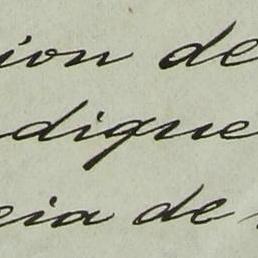 ion de
digue
cia de